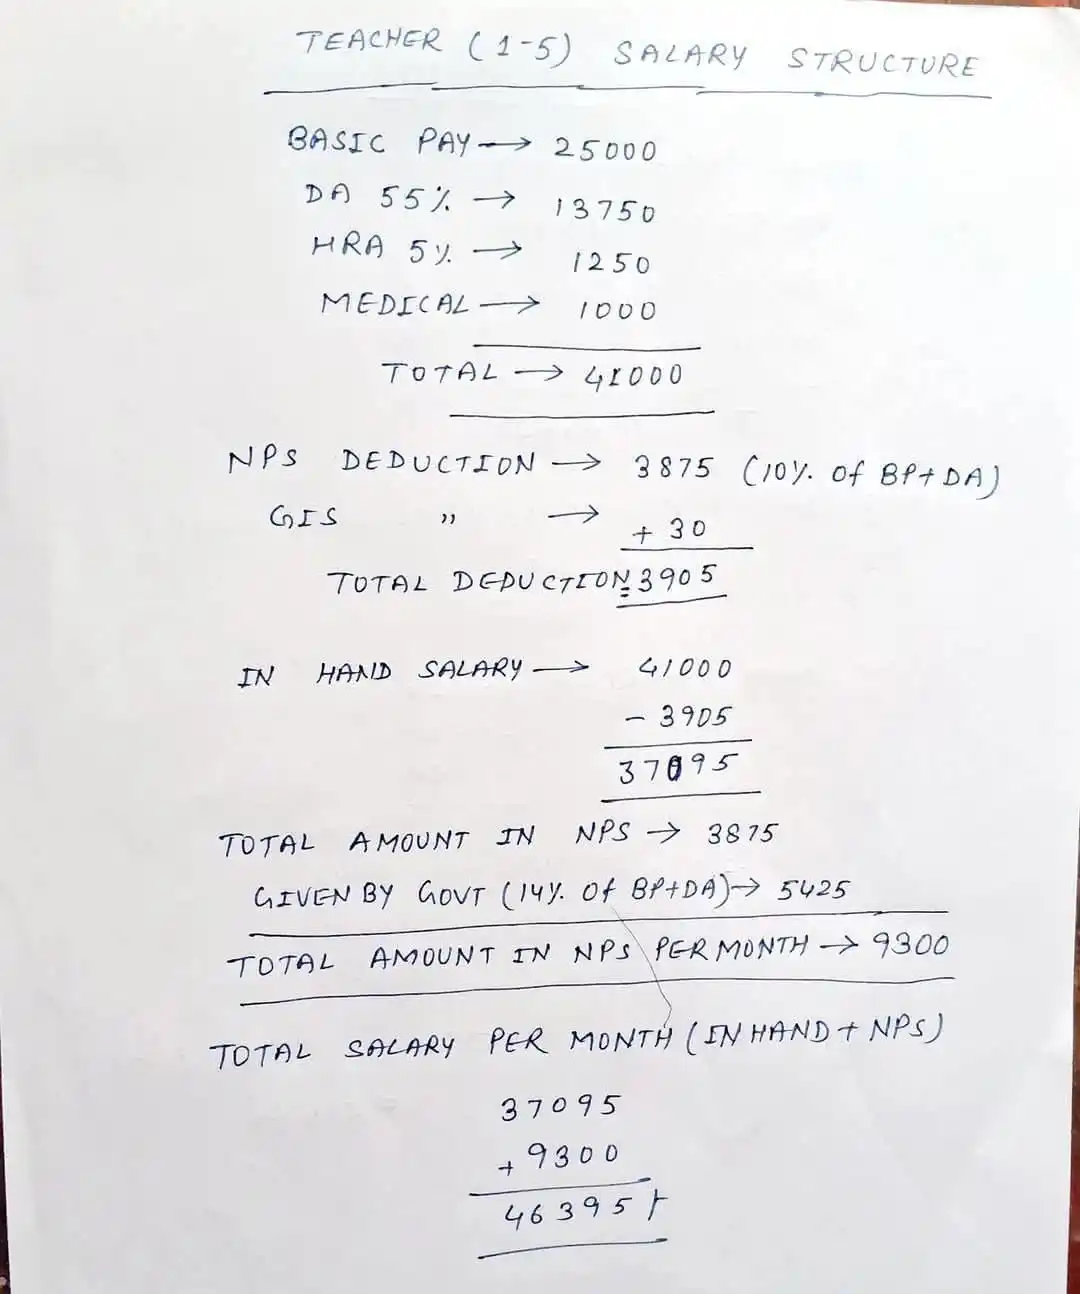 TEACHER (1-5) SALARY STRUCTURE
BASIC PAY → 25000
DA 55% → 13750
HRA 5% → 1250
MEDICAL → 1000
TOTAL → 41000
NPS DEDUCTION → 3875 (10% of BP+DA)
GIS " → + 30
TOTAL DEDUCTION = 3905
IN HAND SALARY → 41000
- 3905
37095
TOTAL AMOUNT IN NPS → 3875
GIVEN BY GOVT (14% of BP+DA) → 5425
TOTAL AMOUNT IN NPS PER MONTH → 9300
TOTAL SALARY PER MONTH (IN HAND + NPS)
37095
+ 9300
46395/-